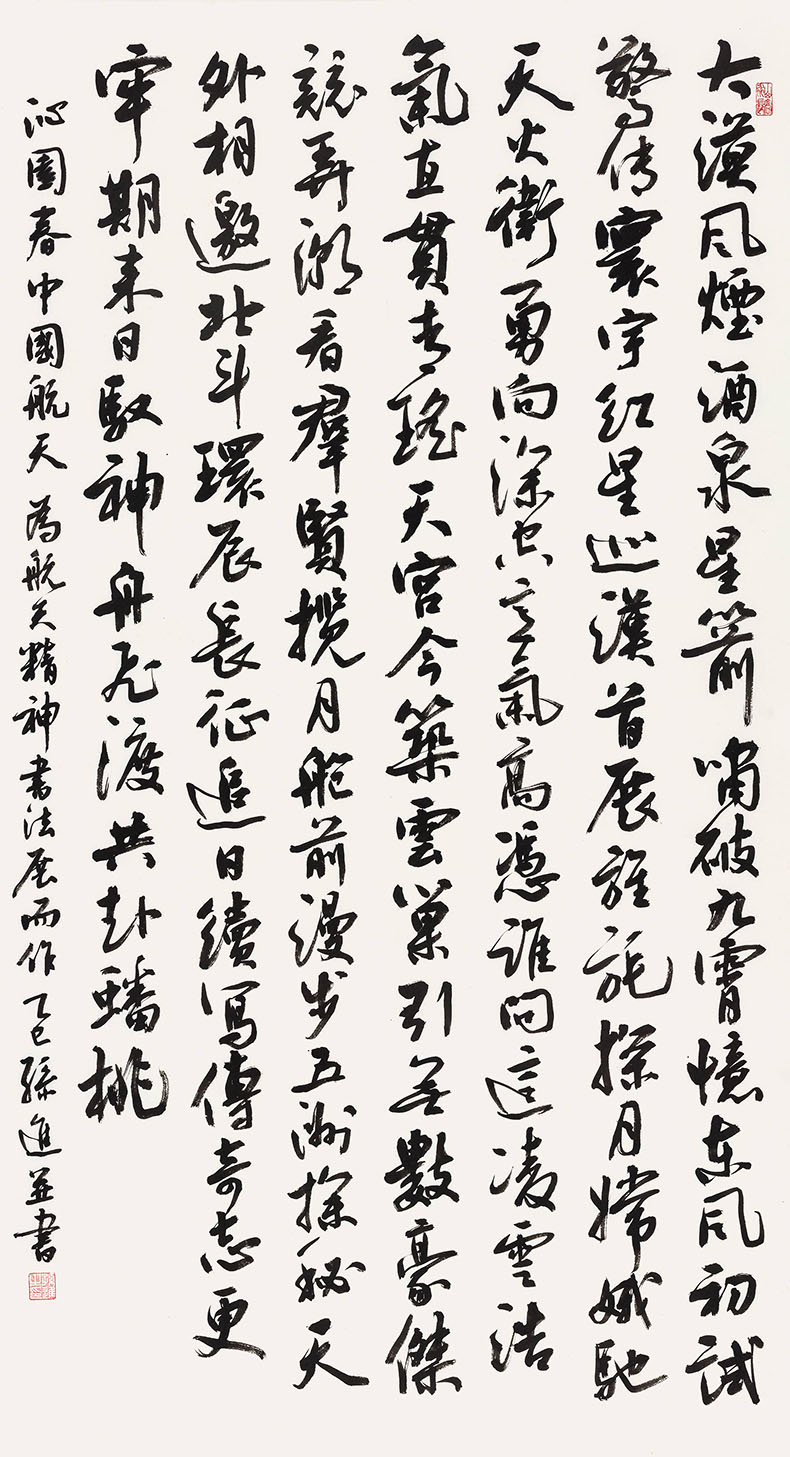 大漠風煙酒泉星箭嘯破九霄憶東風初試
驚傳寰宇紅星巡漢首展旌旄探月嫦娥馳
天火衛勇向深空意氣高憑誰問這凌雲浩
氣直貫青瑤天宮今築雲巢引無數豪傑
競弄潮看羣賢攬月艙前漫步五洲探秘天
外相邀北斗環辰長征追日續寫傳奇志更
牢期來日馭神舟飛渡共赴蟠桃
沁園春中國航天 為航天精神書法展而作 乙巳孫進並書